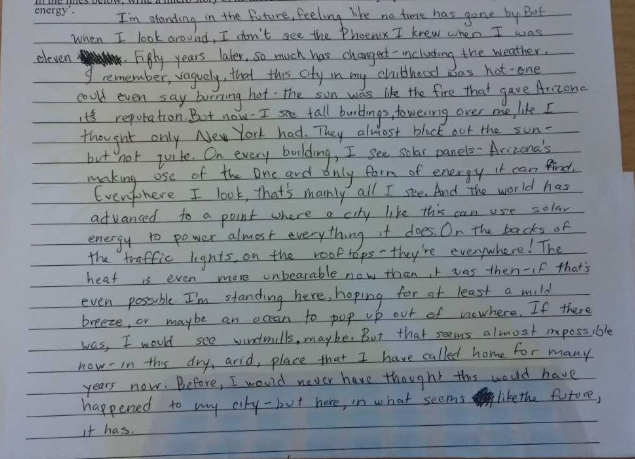 energy'.
I'm standing in the future, feeling like no time has gone by. But
when I look around, I don't see the Phoenix I knew when I was
eleven. Fifty years later, so much has changed - including the weather.
I remember, vaguely, that this city in my childhood was hot - one
could even say burning hot - the sun was like the fire that gave Arizona
its reputation. But now - I see tall buildings, towering over me, like I
thought only New York had. They almost block out the sun -
but not quite. On every building, I see solar panels - Arizona's
making use of the one and only form of energy it can find.
Everywhere I look, that's mainly all I see. And the world has
advanced to a point where a city like this can use solar
energy to power almost everything it does. On the backs of
the traffic lights, on the roof tops - they're everywhere! The
heat is even more unbearable now than it was then - if that's
even possible. I'm standing here, hoping for at least a mild
breeze, or maybe an ocean to pop up out of nowhere. If there
was, I would see windmills, maybe. But that seems almost impossible
now - in this dry, arid, place that I have called home for many
years now. Before, I would never have thought this would have
happened to my city - but here, in what seems like the future,
it has.